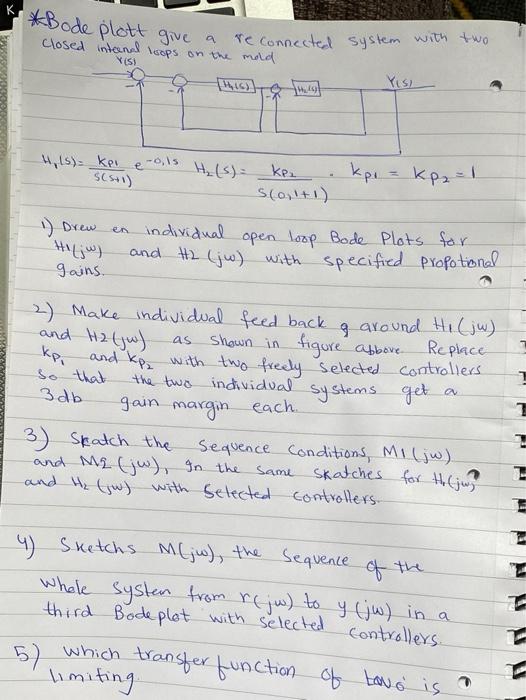 *Bode plott give a reconnected system with two
closed internal loops on the mold
r(s)
H1(s)
H2(s)
Y(s)
H1(s) = Kp1 / s(s+1) e^-0,1s H2(s) = Kp2 / s(0,1+1) . Kp1 = Kp2 = 1
1) Drew en individual open loop Bode Plots for
H1(jw) and H2 (jw) with specified propotional
gains.
2) Make individual feed back g around H1 (jw)
and H2(jw) as shown in figure abbove. Replace
Kp1 and Kp2 with two freely selected controllers
so that the two individual systems get a
3db gain margin each.
3) Skatch the sequence conditions, M1(jw)
and M2 (jw), in the same skatches for H1(jw)
and H2 (jw) with selected controllers.
4) Sketchs M(jw), the sequence of the
whole system from r(jw) to y (jw) in a
third Bodeplot with selected controllers
5) which transfer function of is
limiting.